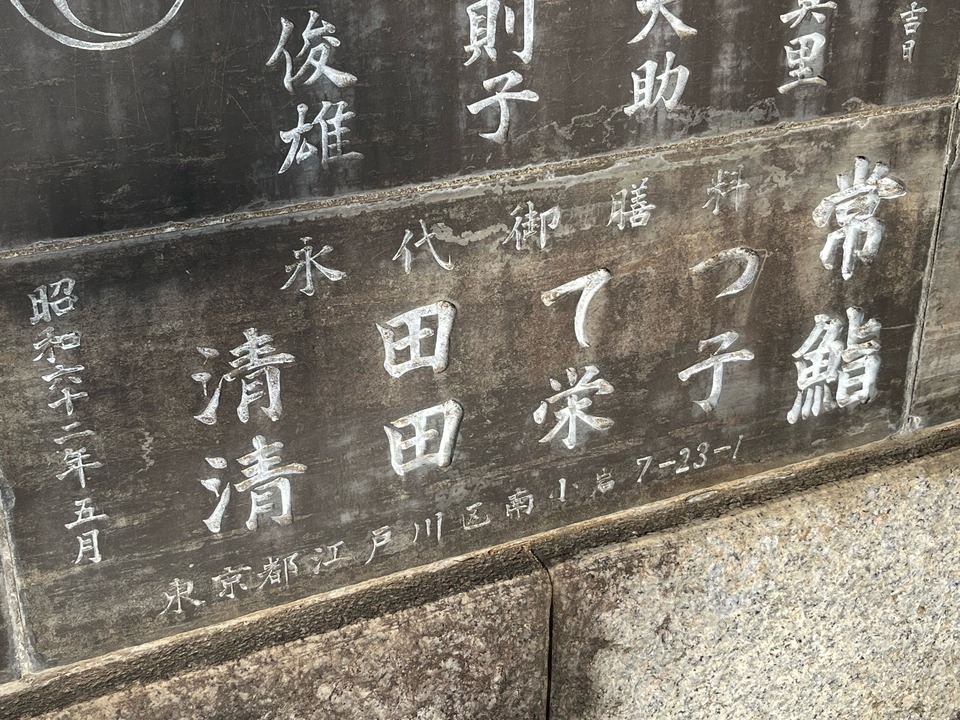 吉日
真里
大助
則子
俊雄
常鮨
永代御膳料
清田てつ
清田栄子
東京都江戸川区南小岩7-23-1
昭和六十二年五月